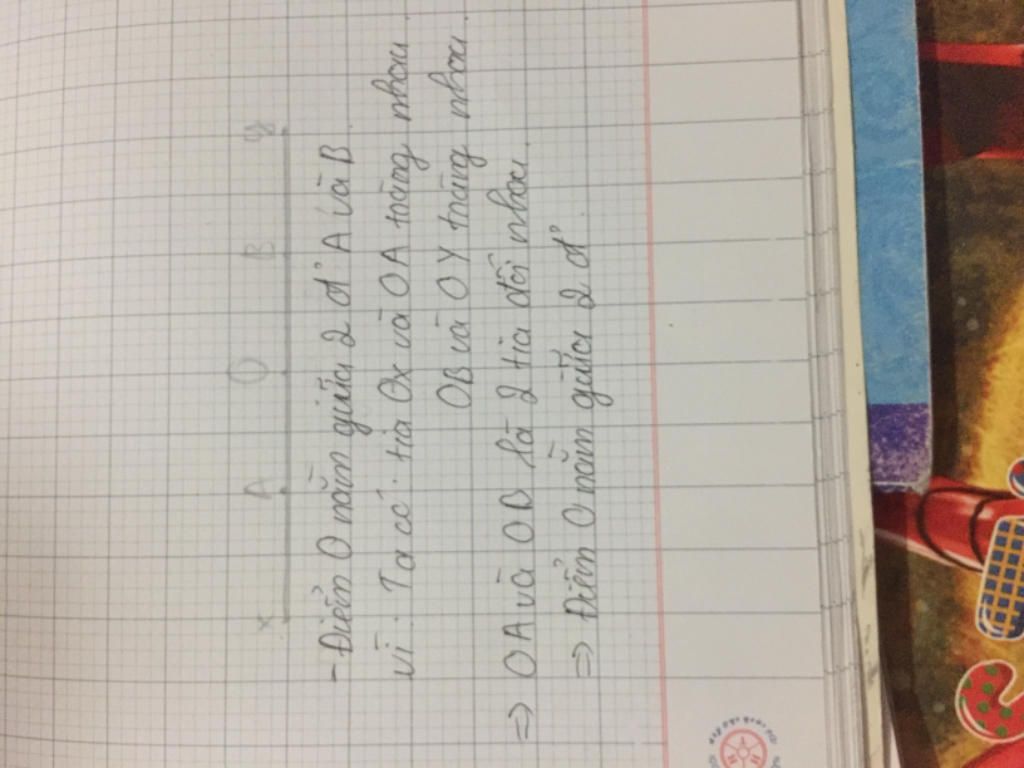 x A O B y
- Điểm O nằm giữa 2 đ' A và B.
vì: Ta có: tia Ox và OA trùng nhau
OB và OY trùng nhau.
=> OA và OB là 2 tia đối nhau.
=> Điểm O nằm giữa 2 đ'